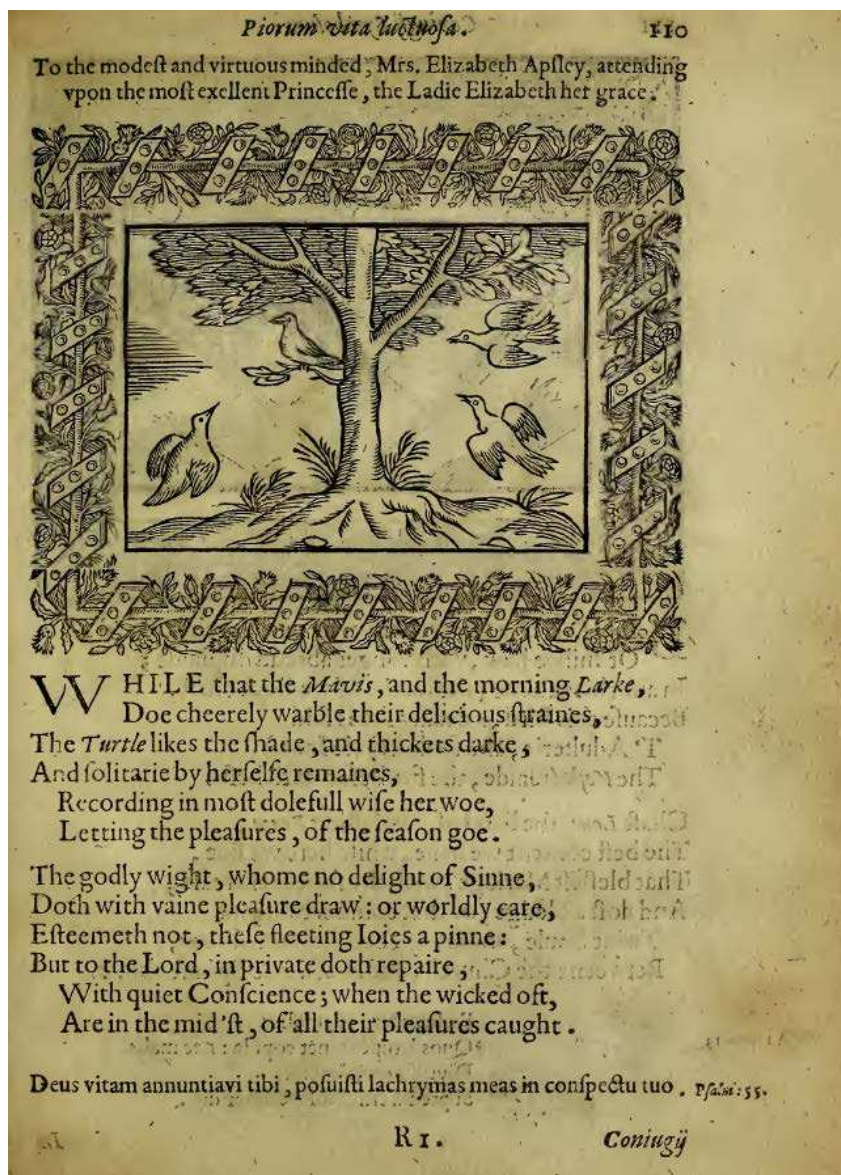 Piorum vita luctuoſa. 110
To the modeſt and virtuous minded, Mrs. Elizabeth Apſley, attending
vpon the moſt exellent Princeſſe, the Ladie Elizabeth her grace.
WHILE that the Mavis, and the morning Larke,
Doe cheerely warble their delicious ſtraines,
The Turtle likes the ſhade, and thickets darke,
And ſolitarie by herſelfe remaines,
Recording in moſt dolefull wiſe her woe,
Letting the pleaſures, of the ſeaſon goe.
The godly wight, whome no delight of Sinne,
Doth with vaine pleaſure draw: or worldly care,
Eſteemeth not, theſe fleeting Ioies a pinne:
But to the Lord, in private doth repaire,
With quiet Conſcience; when the wicked oft,
Are in the mid'ſt, of all their pleaſures caught.
Deus vitam annuntiavi tibi, poſuiſti lachrymas meas in conſpectu tuo. Pſalm: 55.
R 1. Coniugij